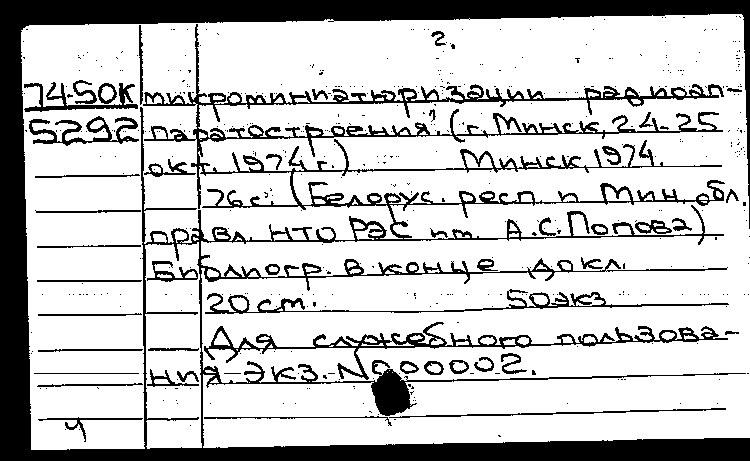 2.
74-50К микроминиатюризации радиоап-
5292 паратостроения". (г. Минск, 24-25
окт. 1974 г.) Минск, 1974.
76 с. (Белорус. респ. и Мин. обл.
правл. НТО РЭС им. А.С. Попова).
Библиогр. в конце докл.
20 см. 50 экз.
Для служебного пользова-
ния. Экз. N000002.